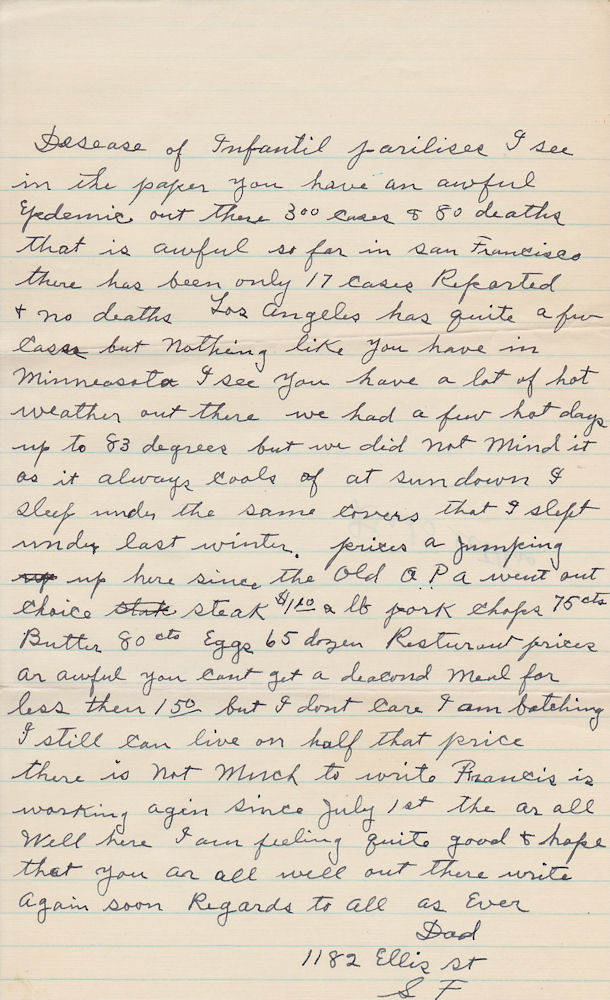 Desease of Infantil parilises I see
in the paper you have an awful
Epdemic out there 300 cases & 80 deaths
that is awful so far in san Francisco
there has been only 17 cases Reported
& no deaths Los Angeles has quite a few
Cases but Nothing like you have in
Minneasota I see you have a lot of hot
weather out there we had a few hot days
up to 83 degrees but we did Not Mind it
as it always cools of at sundown I
sleep under the same covers that I slept
under last winter. prices a jumping
up up here since the Old O P a went out
choice stak steak $1.10 a lb pork chops 75 cts
Butter 80 cts Eggs 65 dozen Resturant prices
ar awful you cant get a deacond Meal for
less then 1 50 but I dont care I am batching
I still can live on half that price
there is Not Much to write Francis is
working agin since July 1st the ar all
Well here I am feeling quite good & hope
that you ar all well out there write
again soon Regards to all as Ever
Dad
1182 Ellis st
S F